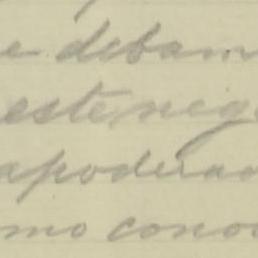 e deban
este nego
apoderad
mo cono